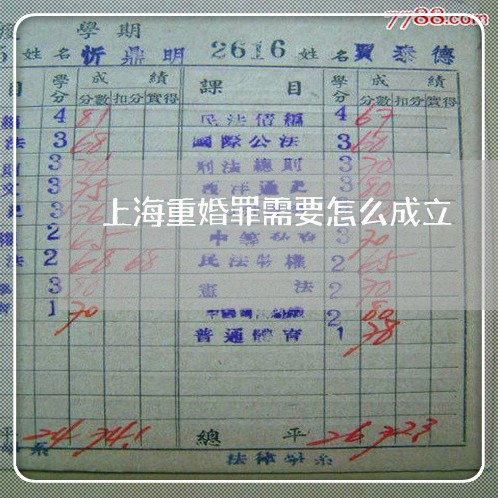 7788.com
學期
姓名 忻鼎明 2616 姓名 賈泰德
目 學分 成績 課目 學分 成績
分數 扣分 實得 分數 扣分 實得
4 81 民法債編 4 67
法 3 68 國際公法 3 60
3 刑法總則 3 70
3 75 西洋通史 3 80
上海重婚罪需要怎么成立
2 65 3 70
法 2 68 68 民法物權 2 65
3 80 憲法 2 70
1 70 2 80
普通體育 1 78
平 24 74.1 總平 26 72.3
系 法律學系